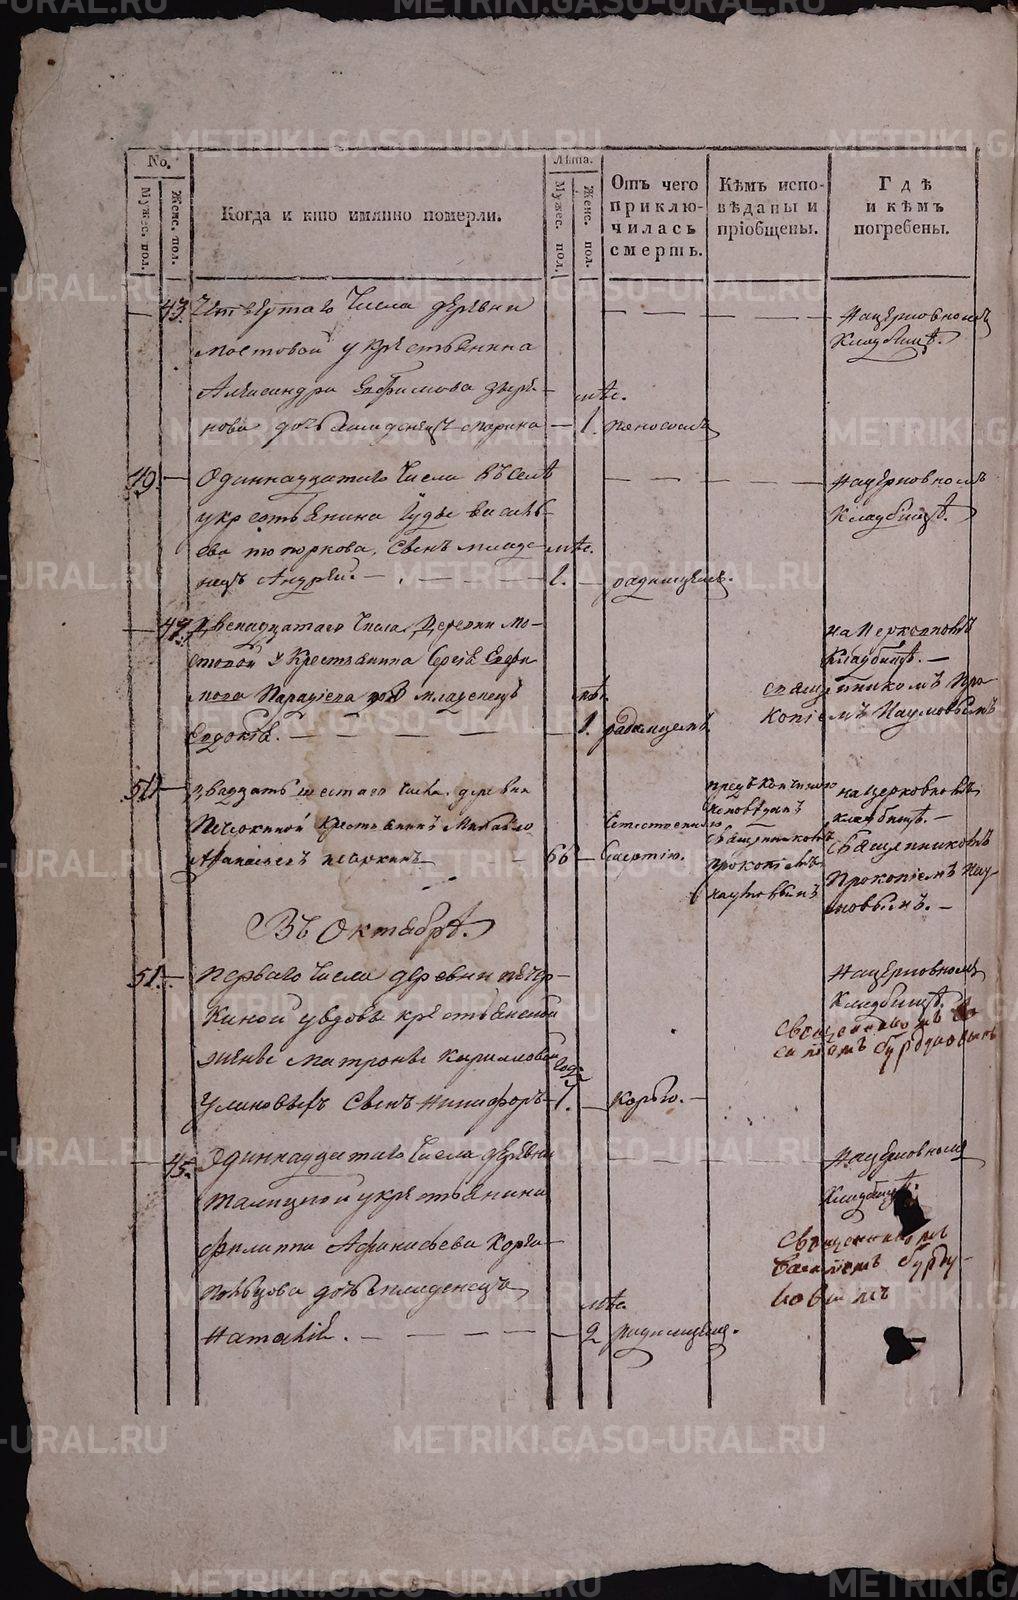 METRIKI.GASO-URAL.RU
No.
Мужес. пол.
Женс. пол.
Когда и кто имянно померли.
Лѣта.
Мужес. пол.
Женс. пол.
Отъ чего приклю-
чилась смерть.
Кѣмъ испо-
вѣданы и
пріобщены.
Гдѣ
и кѣмъ
погребены.
43. Четвертаго Числа деревни
мостовой у крестьянина
Александра Ефимова
дочь младенецъ Марина — 1. поносомъ
мѣс.
На церковномъ
Кладбищѣ.
49. Одиннадцатаго Числа въ селѣ
у крестьянина Іуды василь-
ева топоркова, Сынъ младе-
нецъ Андрей. — 1. — родимцемъ.
мѣс.
На церковномъ
Кладбищѣ.
Двенадцатаго Числа Деревни Мо-
стовой у Крестьянина Сергѣя
младенецъ
Евдокія. — 1. родимцемъ
на Церковномъ
Кладбищѣ. —
священникомъ Про-
копіемъ Наумовымъ
50 двадцать шестаго числа. деревни
Печеркиной Крестьянинъ Михайло
Афанасьевъ — 66 —
Естественною
Смертію.
исповѣданъ
священникомъ
Прокопіемъ
Наумовымъ
на церковномъ
кладбищѣ. —
Священникомъ
Прокопіемъ Нау-
мовымъ. —
Въ Октябрѣ.
51. — Перваго Числа деревни печер-
киной у вдовы крестьянской
жонки Матроны Кириловой
Сынъ Никифоръ — 1. — Корью. —
годъ
На церковномъ
Кладбищѣ.
Священникомъ Ва-
силіемъ
45. Одиннадцатаго Числа деревни
талицкой у крестьянина
филиппа Афанасьева
дочь младенецъ
Наталія. — 2 родимцемъ.
мѣс.
На церковномъ
Кладбищѣ.
Священникомъ
Василіемъ